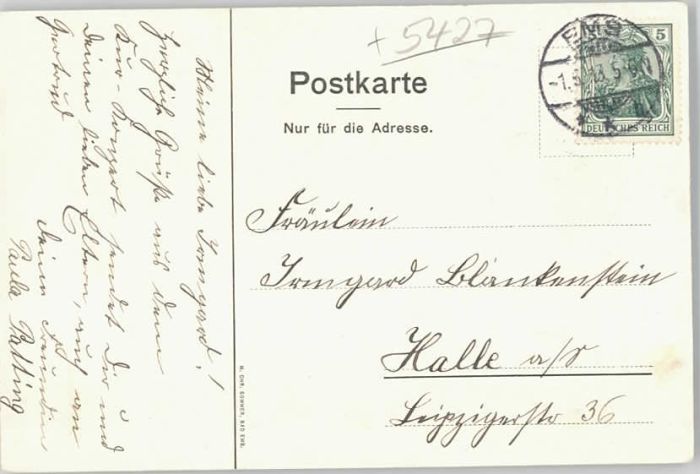 Meine liebe Irmgard!
Herzliche Grüße aus dem
Kur-Konzert sendet Dir und
Deinen lieben Eltern, auch an
Gertrud
Deine Freundin
Paula
+ 5427
Postkarte
Nur für die Adresse.
EMS
DEUTSCHES REICH
5
Fräulein
Irmgard Blankenstein
Halle a/S
Leipzigerstr 36
N. CHR. SOMMER, BAD EMS.